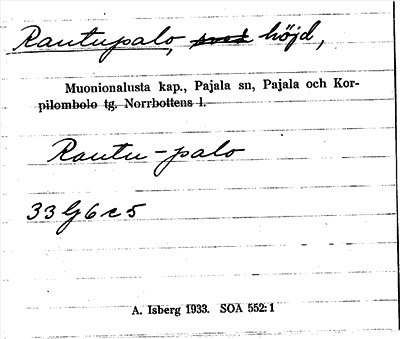 Rautupalo, höjd,
Muonionalusta kap., Pajala sn, Pajala och Kor-
pilombolo tg. Norrbottens l.
Rautu-palo
33 G 6 c 5
A. Isberg 1933. SOA 552:1